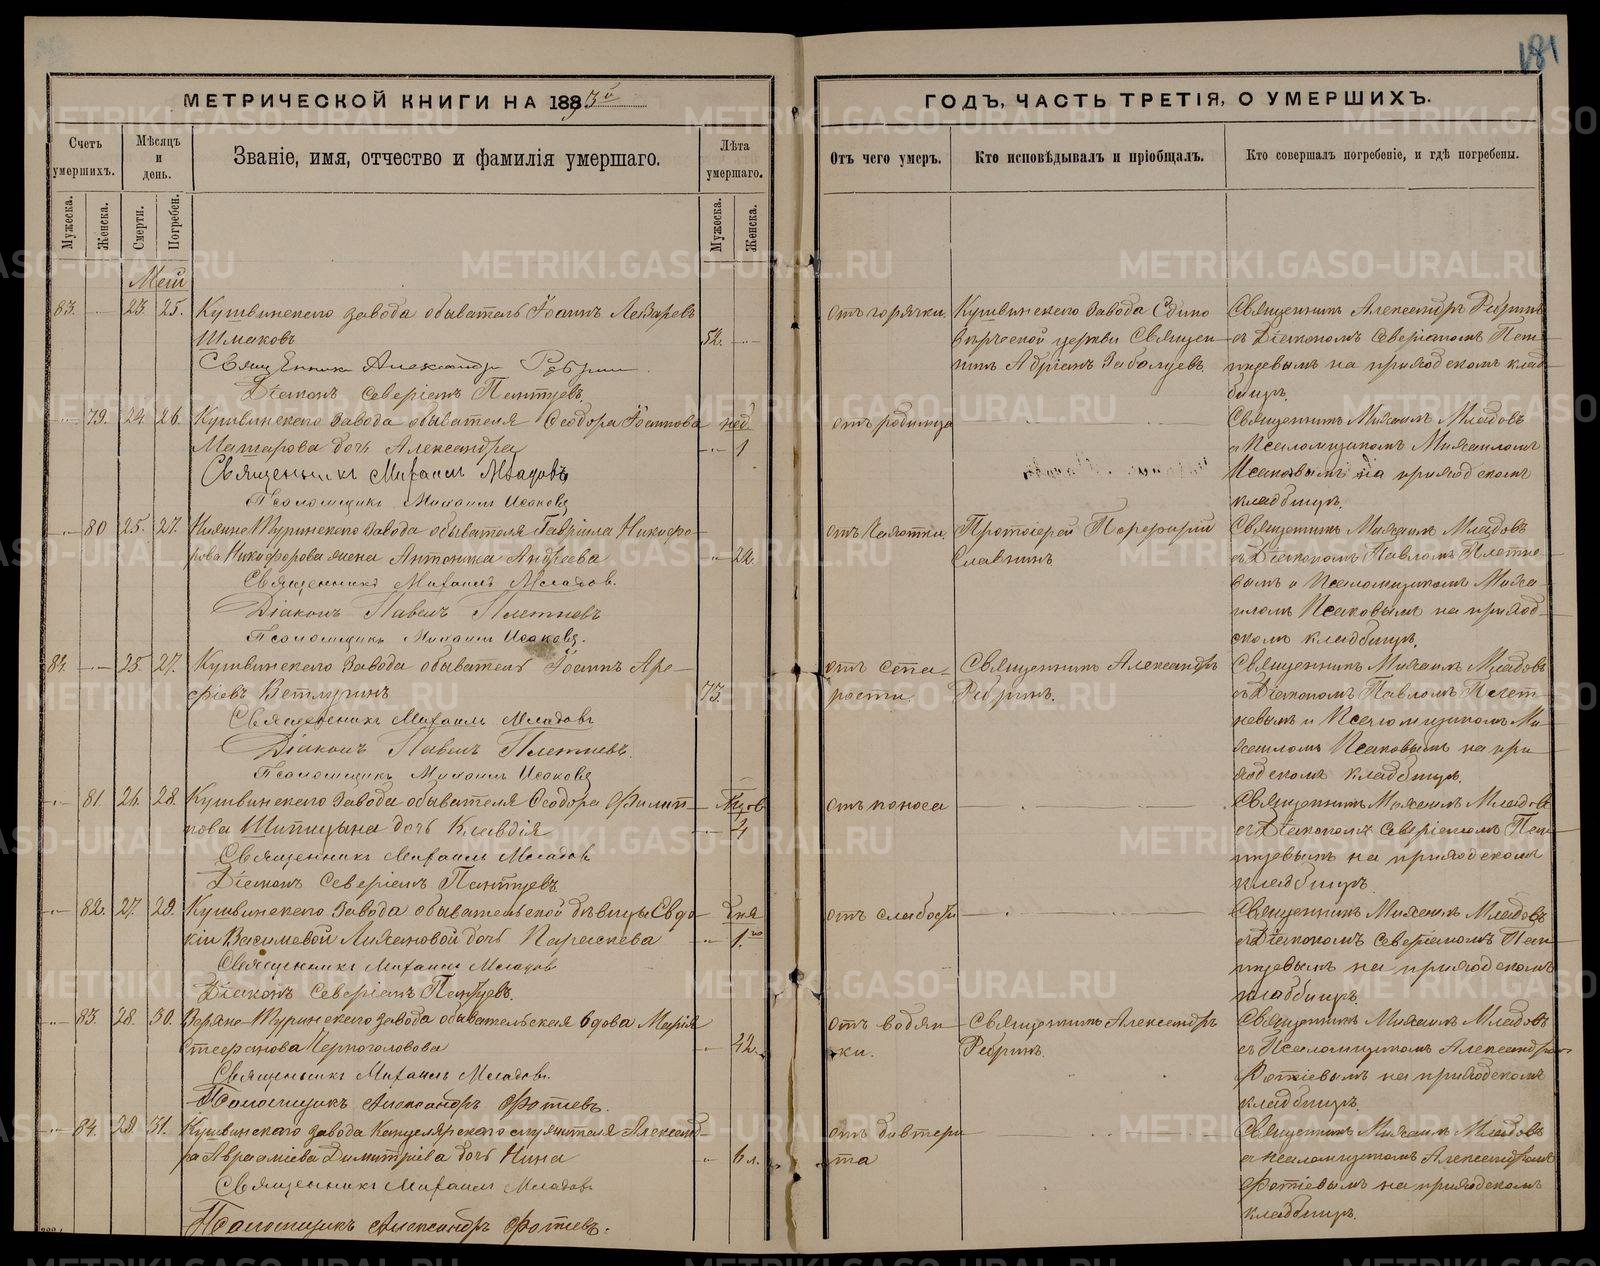 181
МЕТРИЧЕСКОЙ КНИГИ НА 1883й
ГОДЪ, ЧАСТЬ ТРЕТІЯ, О УМЕРШИХЪ.
Счетъ умершихъ.
Мѣсяцъ и день.
Званіе, имя, отчество и фамилія умершаго.
Лѣта умершаго.
Отъ чего умеръ.
Кто исповѣдывалъ и пріобщалъ.
Кто совершалъ погребеніе, и гдѣ погребены.
Мужеска.
Женска.
Смерти.
Погребен.
Мужеска.
Женска.
Май
83. 23. 25. Кушвинскаго завода обыватель Іоаннъ Лазаревъ
Шмаковъ 52.
Священникъ Александръ Ребринъ
Діаконъ Северіанъ Пантуевъ.
отъ горячки.
Кушвинскаго Завода Едино
вѣрческой церкви Священ
никъ Адріанъ Заболуевъ.
Священникъ Александръ Ребринъ
съ Діакономъ Северіаномъ Пан
туевымъ на приходскомъ клад
бищѣ.
79. 24 26. Кушвинскаго Завода обывателя Ѳеодора Іоаннова нед
Матарова дочь Александра 1
Священникъ Михаилъ Младовъ
Псаломщикъ Михаилъ Исаковъ
отъ родимца
Священникъ Михаилъ Младовъ
съ Псаломщикомъ Михаиломъ
Исаковымъ на приходскомъ
кладбищѣ.
80 25. 27. Нижне Туринскаго Завода обывателя Гавріила Никифо
рова Никифорова жена Антонина Андреева 24.
Священникъ Михаилъ Младовъ.
Діаконъ Павелъ Плетневъ
Псаломщикъ Михаилъ Исаковъ.
отъ Чахотки.
Протоіерей Порфирій
Славнинъ
Священникъ Михаилъ Младовъ
съ Діакономъ Павломъ Плетне
вымъ и Псаломщикомъ Миха
иломъ Исаковымъ на приход
скомъ кладбищѣ.
84. 25 27. Кушвинскаго Завода обыватель Іоаннъ Аре
фіевъ Ветлугинъ 73.
Священникъ Михаилъ Младовъ
Діаконъ Павелъ Плетневъ.
Псаломщикъ Михаилъ Исаковъ
отъ ста
рости
Священникъ Александръ
Ребринъ.
Священникъ Михаилъ Младовъ
съ Діакономъ Павломъ Плет
невымъ и Псаломщикомъ Ми
хаиломъ Исаковымъ на при
ходскомъ кладбищѣ.
81. 26. 28. Кушвинскаго Завода обывателя Ѳеодора Филип
пова Шипицына дочь Клавдія 4
Священникъ Михаилъ Младовъ
Діаконъ Северіанъ Пантуевъ.
отъ поноса
Священникъ Михаилъ Младовъ
съ Діакономъ Северіаномъ Пан
туевымъ на приходскомъ
кладбищѣ.
82. 27. 29. Кушвинскаго Завода обывательской дѣвицы Евдо дня
кіи Васильевой Лихановой дочь Параскева 1го
Священникъ Михаилъ Младовъ
Діаконъ Северіанъ Пантуевъ.
отъ слабости
Священникъ Михаилъ Младовъ
съ Діакономъ Северіаномъ Пан
туевымъ на приходскомъ
кладбищѣ.
83. 28. 30. Верхне-Туринскаго завода обывательская вдова Марія
Стефанова Черноголовова 42.
Священникъ Михаилъ Младовъ.
Псаломщикъ Александръ Фотіевъ.
отъ водян
ки.
Священникъ Александръ
Ребринъ.
Священникъ Михаилъ Младовъ
съ Псаломщикомъ Александромъ
Фотіевымъ на приходскомъ
кладбищѣ.
84. 28 31. Кушвинскаго завода Канцелярскаго служителя Александ
ра Авраміева Димитріева дочь Нина 6 л.
Священникъ Михаилъ Младовъ
Псаломщикъ Александръ Фотіевъ.
отъ дифтери
та
Священникъ Михаилъ Младовъ
съ псаломщикомъ Александромъ
Фотіевымъ на приходскомъ
кладбищѣ.
METRIKI.GASO-URAL.RU